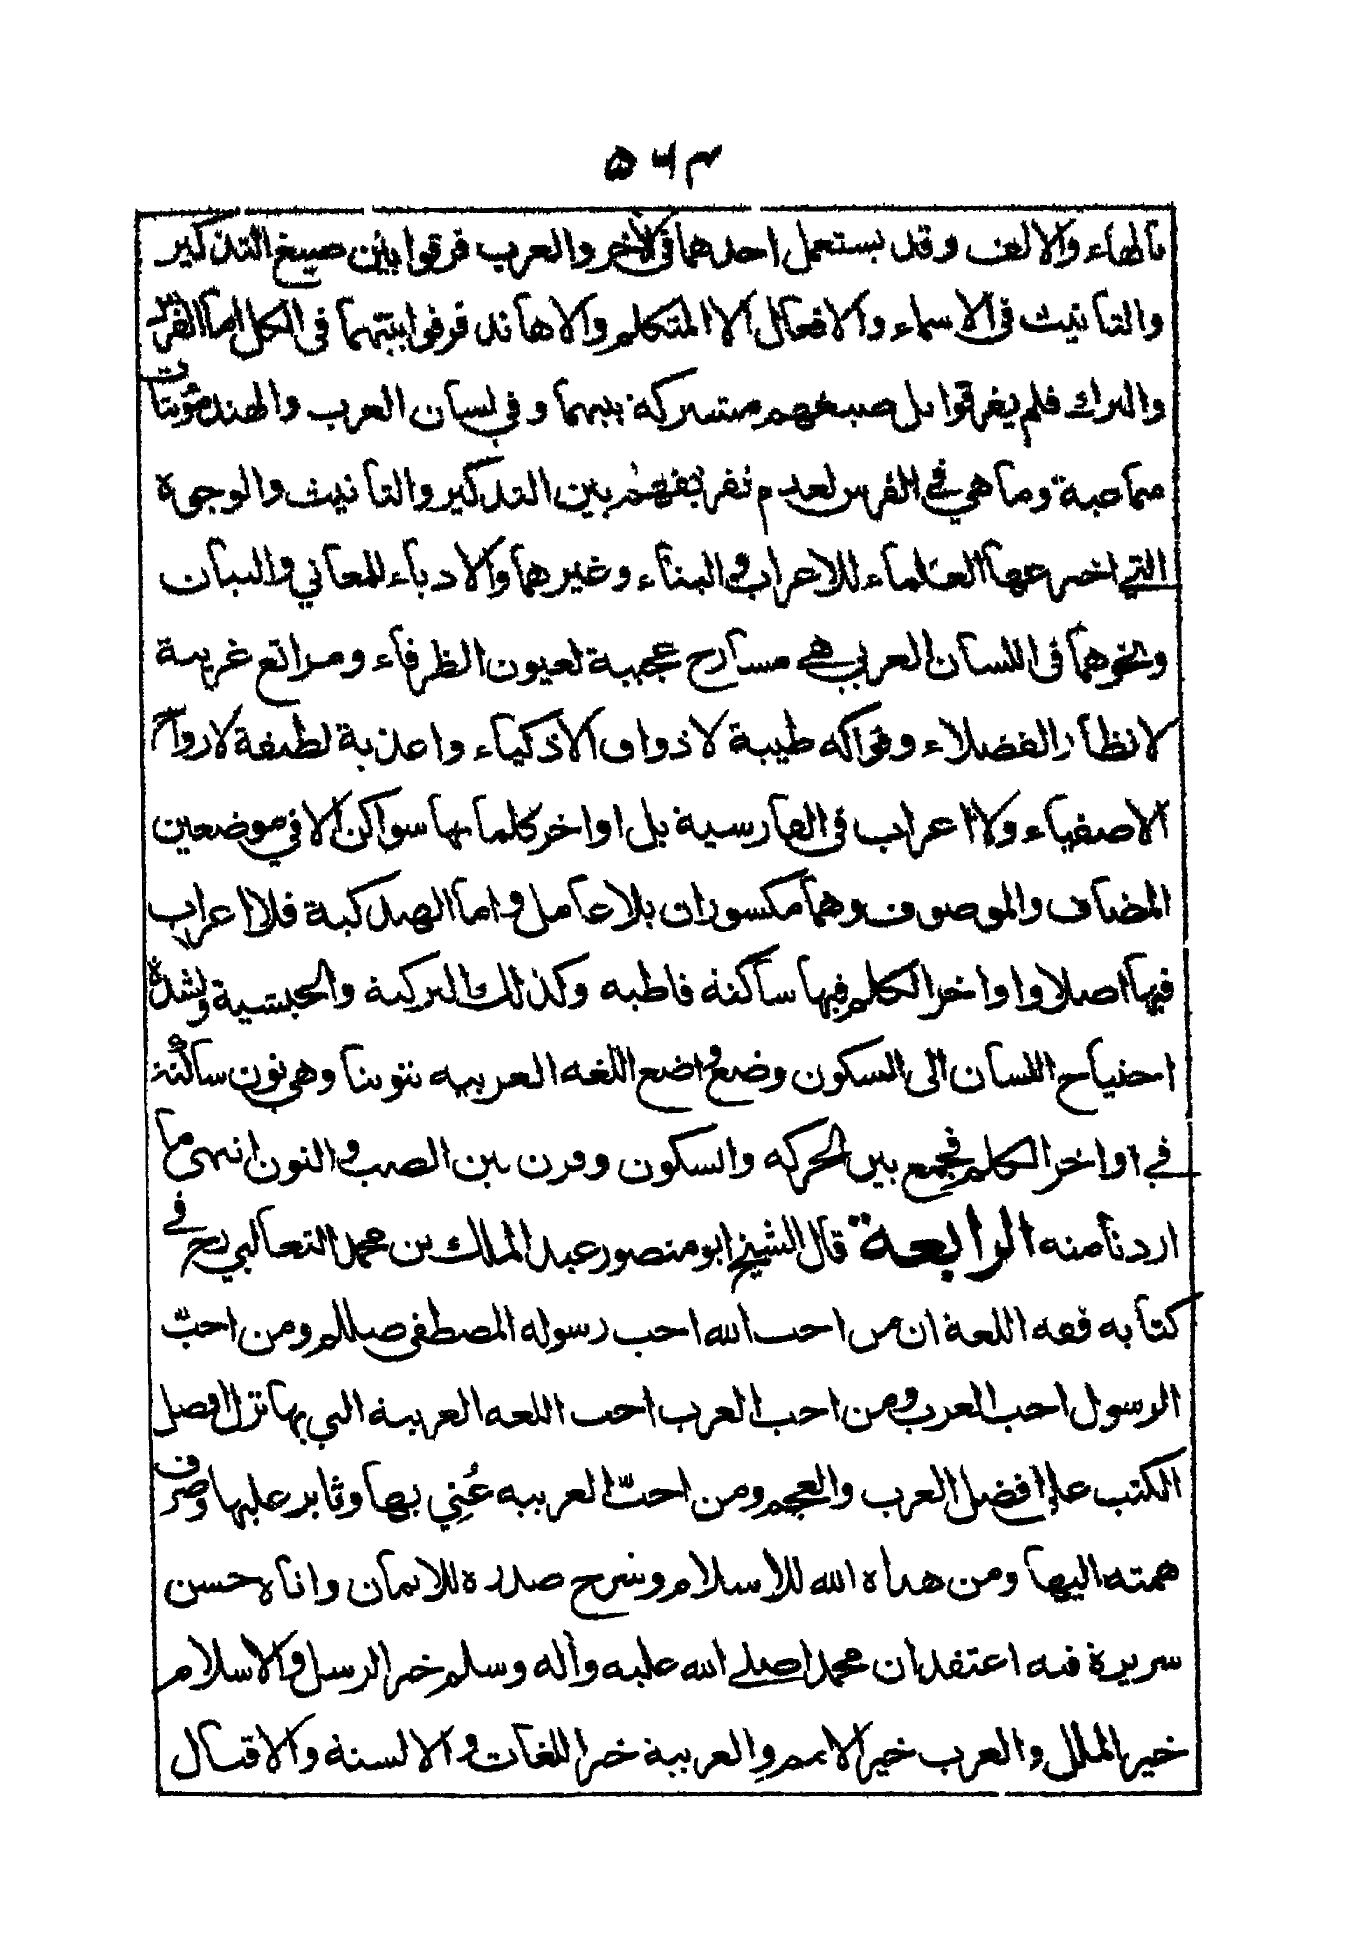 ۵۶۳
بالهاء والالف وقد يستعمل احدهما في الاخر والعرب فرقوا بين صيغ التذكير
والتانيث في الاسماء والافعال الا المتكلم والاهاند فرقوا بينهما في الكل اما الفرس
والترك فلم يفرقوا بل صيغهم مشتركة بينهما وفي لسان العرب والهند مؤنثات
سماعية وما هي في الفرس لعدم تفريقهم بين التذكير والتانيث والوجوه
التي اخترعها العلماء للاعراب والبناء وغيرهما والادباء للمعاني والبيان
ونحوهما في اللسان العربي هي مسارح عجيبة لعيون الظرفاء ومراتع غريبة
لانظار الفضلاء وفواكه طيبة لاذواق الاذكياء واعذبة لطيفة لارواح
الاصفياء ولا اعراب في الفارسية بل اواخر كلماتها سواكن الا في موضعين
المضاف والموصوف وهما مكسوران بلا عامل واما الهندكية فلا اعراب
فيها اصلا واواخر الكلم فيها ساكنة قاطبه وكذلك التركية والحبشية ولشدة
احتياج اللسان الى السكون وضع واضع اللغه العربيه تنوينا وهي نون ساكنة
في اواخر الكلم فجمع بين الحركه والسكون وقرن بين الضب والنون انتهى ما
اردنا منه الرابعة قال الشيخ ابو منصور عبد الملك بن محمد الثعالبي رح في
كتابه فقه اللغة ان من احب الله احب رسوله المصطفى صللم ومن احبّ
الرسول احب العرب ومن احب العرب احب اللغه العربية التي بها نزل افضل
الكتب على افضل العرب والعجم ومن احبّ العربيه عُنِي بها وثابر عليها وصرف
همته اليها ومن هداه الله للاسلام وشرح صدره للايمان واتاه حسن
سريرة فيه اعتقد ان محمدا صلى الله عليه وآله وسلم خير الرسل والاسلام
خير الملل والعرب خير الامم والعربية خير اللغات والالسنة والاقبال